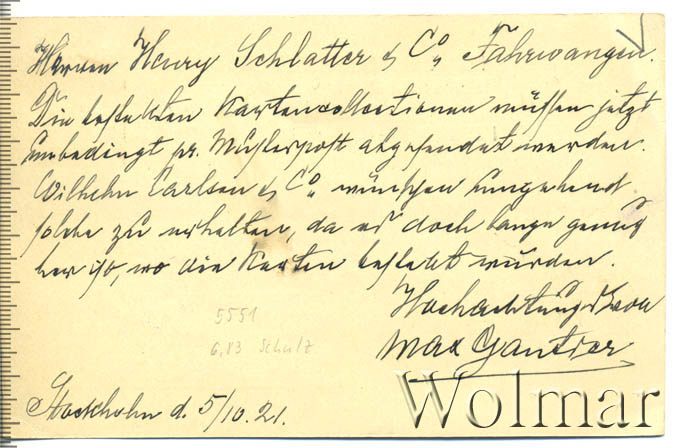 Herren Henry Schlatter & Co, Fahrwangen.
Die bestellten Kartencollectionen müssen jetzt
unbedingt pr. Musterpost abgesendet werden.
Wilhelm Carlson & Co, wünschen umgehend
solche zu erhalten, da es doch lange genug
her ist, wo die Karten bestellt wurden.
Hochachtungsvoll
Max Gautier
5551
6,83 Schulz
Stockholm d. 5/10.21.
Wolmar